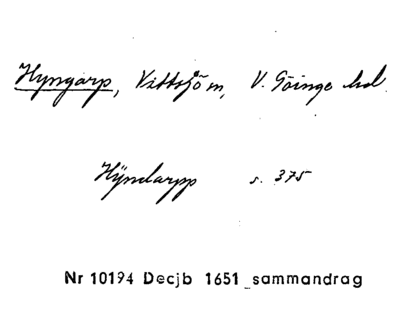 Hyngarp, Vittsjö sn, V. Göinge hd.
Hÿndarpp s. 375
Nr 10194 Decjb 1651 sammandrag